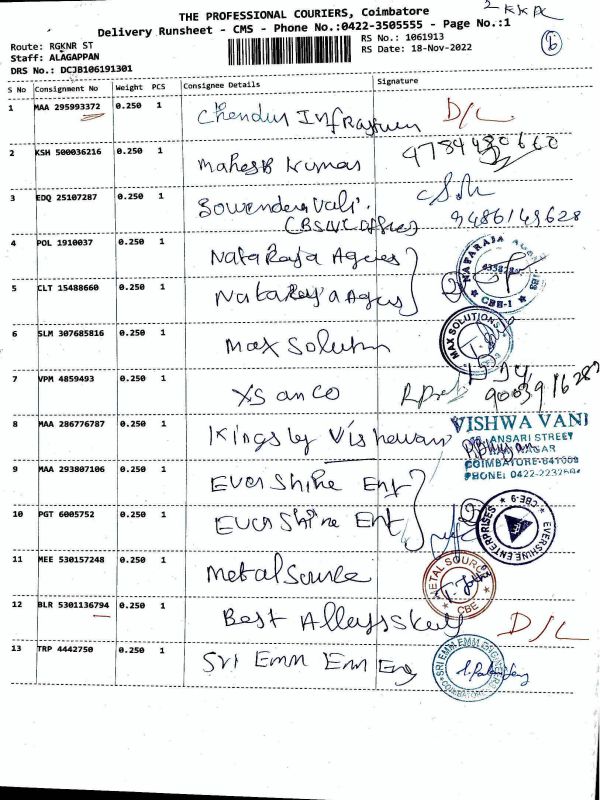 THE PROFESSIONAL COURIERS, Coimbatore
Delivery Runsheet - CMS - Phone No.:0422-3505555 - Page No.:1
Route: RGKNR ST
Staff: ALAGAPPAN
DRS No.: DCJB106191301
RS No.: 1061913
RS Date: 18-Nov-2022
S No Consignment No Weight PCS Consignee Details Signature
1 MAA 295993372 0.250 1 D/L
2 KSH 500036216 0.250 1 Mahesh Kumar
3 EDQ 25107287 0.250 1
9486149628
4 POL 1910037 0.250 1 Nataraja Agencies
NATARAJA AGENCIES
CBE-1
5 CLT 15488660 0.250 1 Nataraja Agencies
6 SLM 307685816 0.250 1 Max Solution
MAX SOLUTIONS
7 VPM 4859493 0.250 1 XS an CO
8 MAA 286776787 0.250 1 Kingsley Vishewan
VISHWA VANI
ANSARI STREET
NAGAR
COIMBATORE-641009
PHONE: 0422-223
9 MAA 293807106 0.250 1 Ever Shine Ent
10 PGT 6005752 0.250 1 Ever Shine Ent
EVERSHINE ENTERPRISES
CBE-9
11 MEE 530157248 0.250 1 Metal Source
METAL SOURCE
CBE
12 BLR 5301136794 0.250 1 Best Alloys D/L
13 TRP 4442750 0.250 1 Sri Emm Emm Eng
SRI EMM EMM ENGINEERS
COIMBATORE